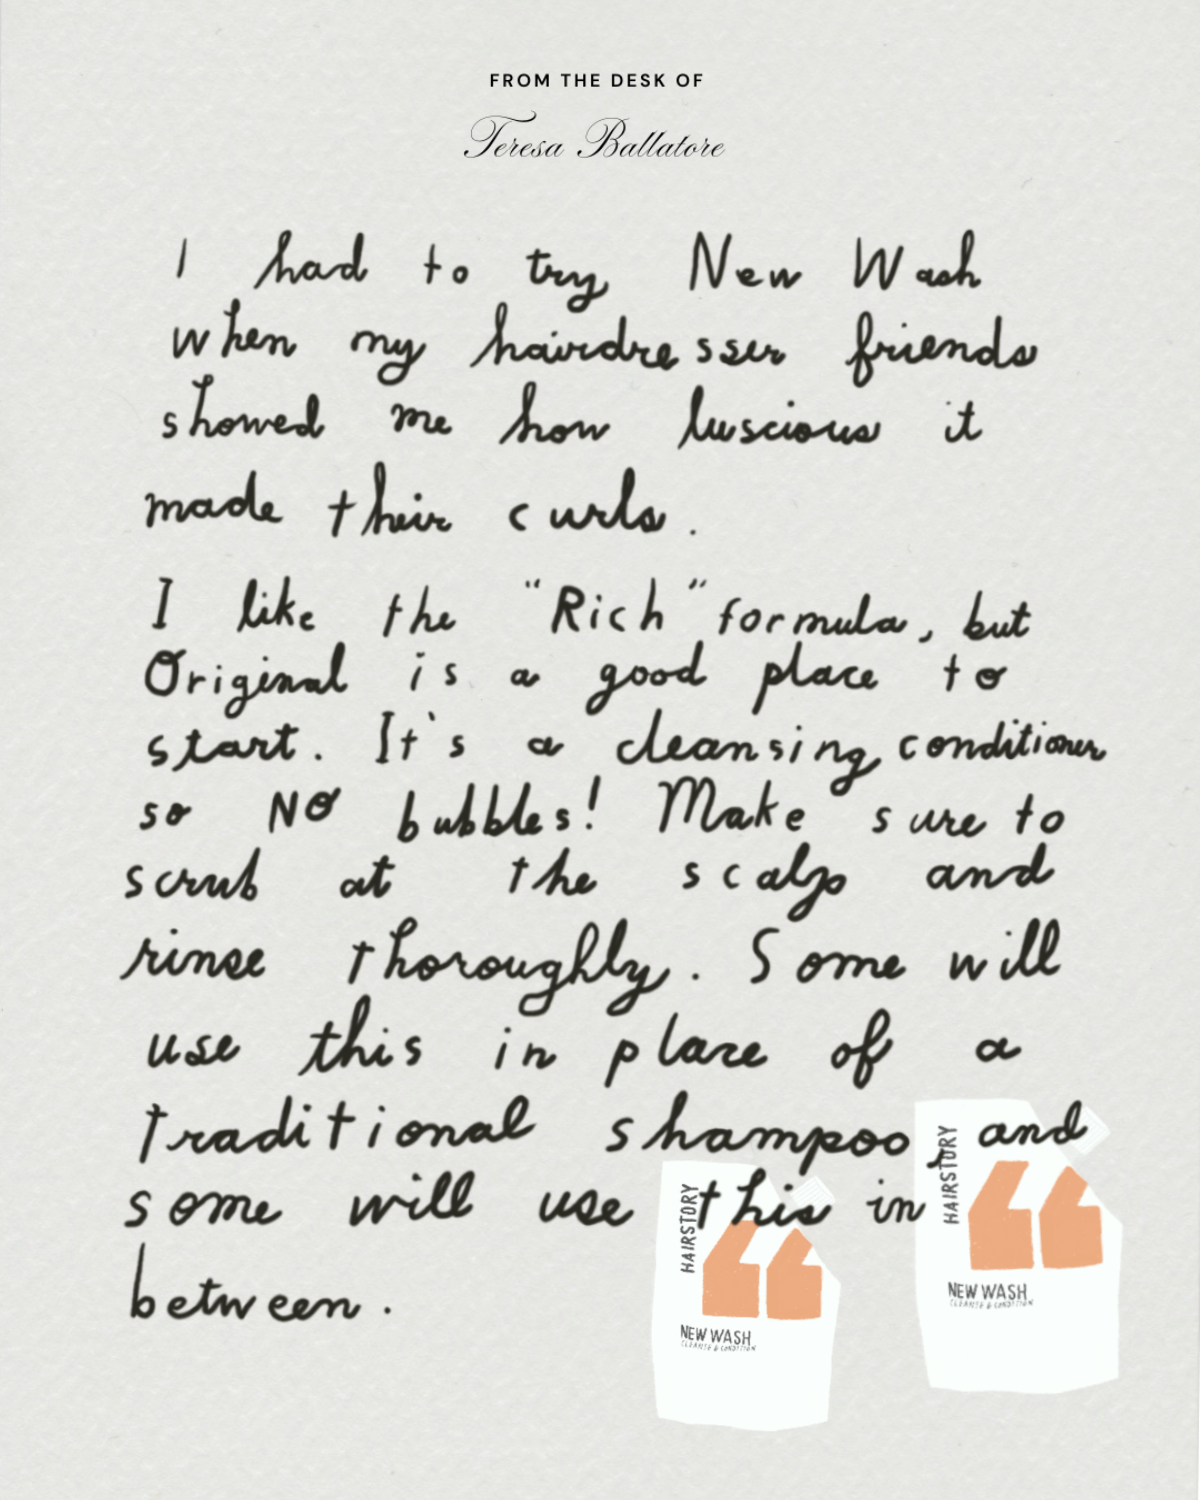 FROM THE DESK OF
Teresa Ballatore
I had to try New Wash
when my hairdresser friends
showed me how luscious it
made their curls.
I like the "Rich" formula, but
Original is a good place to
start. It's a cleansing conditioner
so NO bubbles! Make sure to
scrub at the scalp and
rinse thoroughly. Some will
use this in place of a
traditional shampoo, and
some will use this in
between.
HAIRSTORY
NEW WASH
HAIRSTORY
NEW WASH